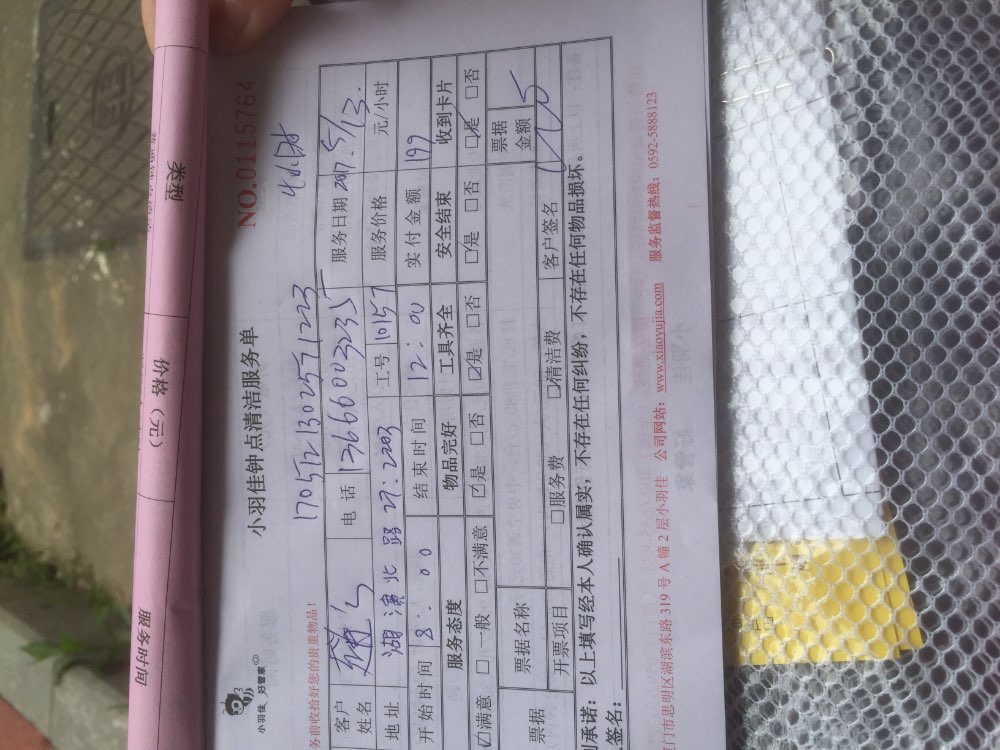 服务时间 价格（元） 类型
小羽佳 好管家
小羽佳钟点清洁服务单
NO.0115764
17051213025711223 4小时
务前收拾好您的贵重物品！
客户姓名 电话 13666003235 服务日期 2017.5/13.
地址 湖滨北路27:2203 工号 10157 服务价格 元/小时
开始时间 8:00 结束时间 12:00 实付金额 199
服务态度 物品完好 工具齐全 安全结束 收到卡片
☑满意 □一般 □不满意 ☑是 □否 ☑是 □否 ☑是 □否 ☑是 □否
票据 票据名称 票据金额
开票项目 □服务费 □清洁费 客户签名
承诺：以上填写经本人确认属实，不存在任何纠纷，不存在任何物品损坏。
签名：
门市思明区湖滨东路319号A幢2层小羽佳 公司网站：www.xiaoyujia.com 服务监督热线：0592-5888123